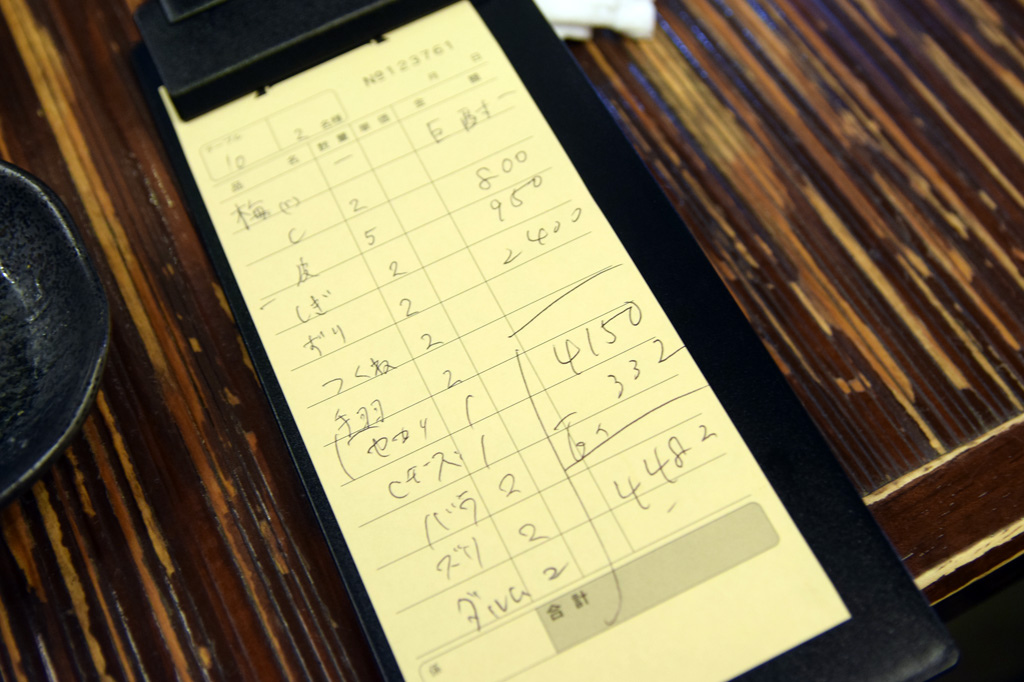 №123761
月 日
テーブル 10 2 名様
品 名 数量 単価 金額
梅 一
2 800
皮 5 950
しぎ 2 2400
ずり 2
つくね 2
手羽 2 4150
セセリ 1 332
Cチーズ 1
バラ 2 4482
ズリ 2
ダルム 2
合計
係